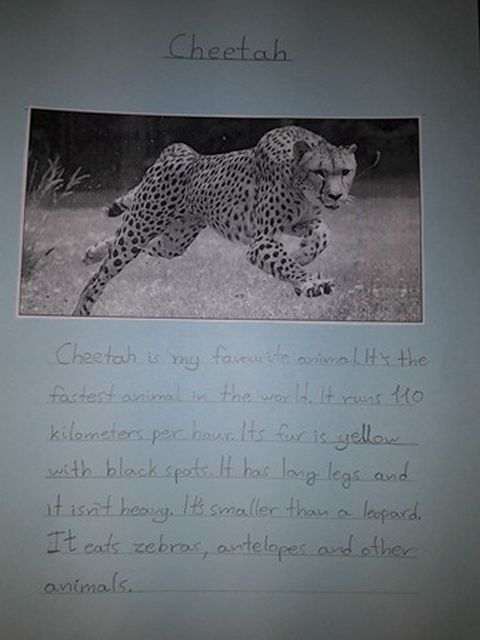 Cheetah
Cheetah is my favourite animal. It's the
fastest animal in the world. It runs 110
kilometers per hour. Its fur is yellow
with black spots. It has long legs and
it isn't heavy. It's smaller than a leopard.
It eats zebras, antelopes and other
animals.